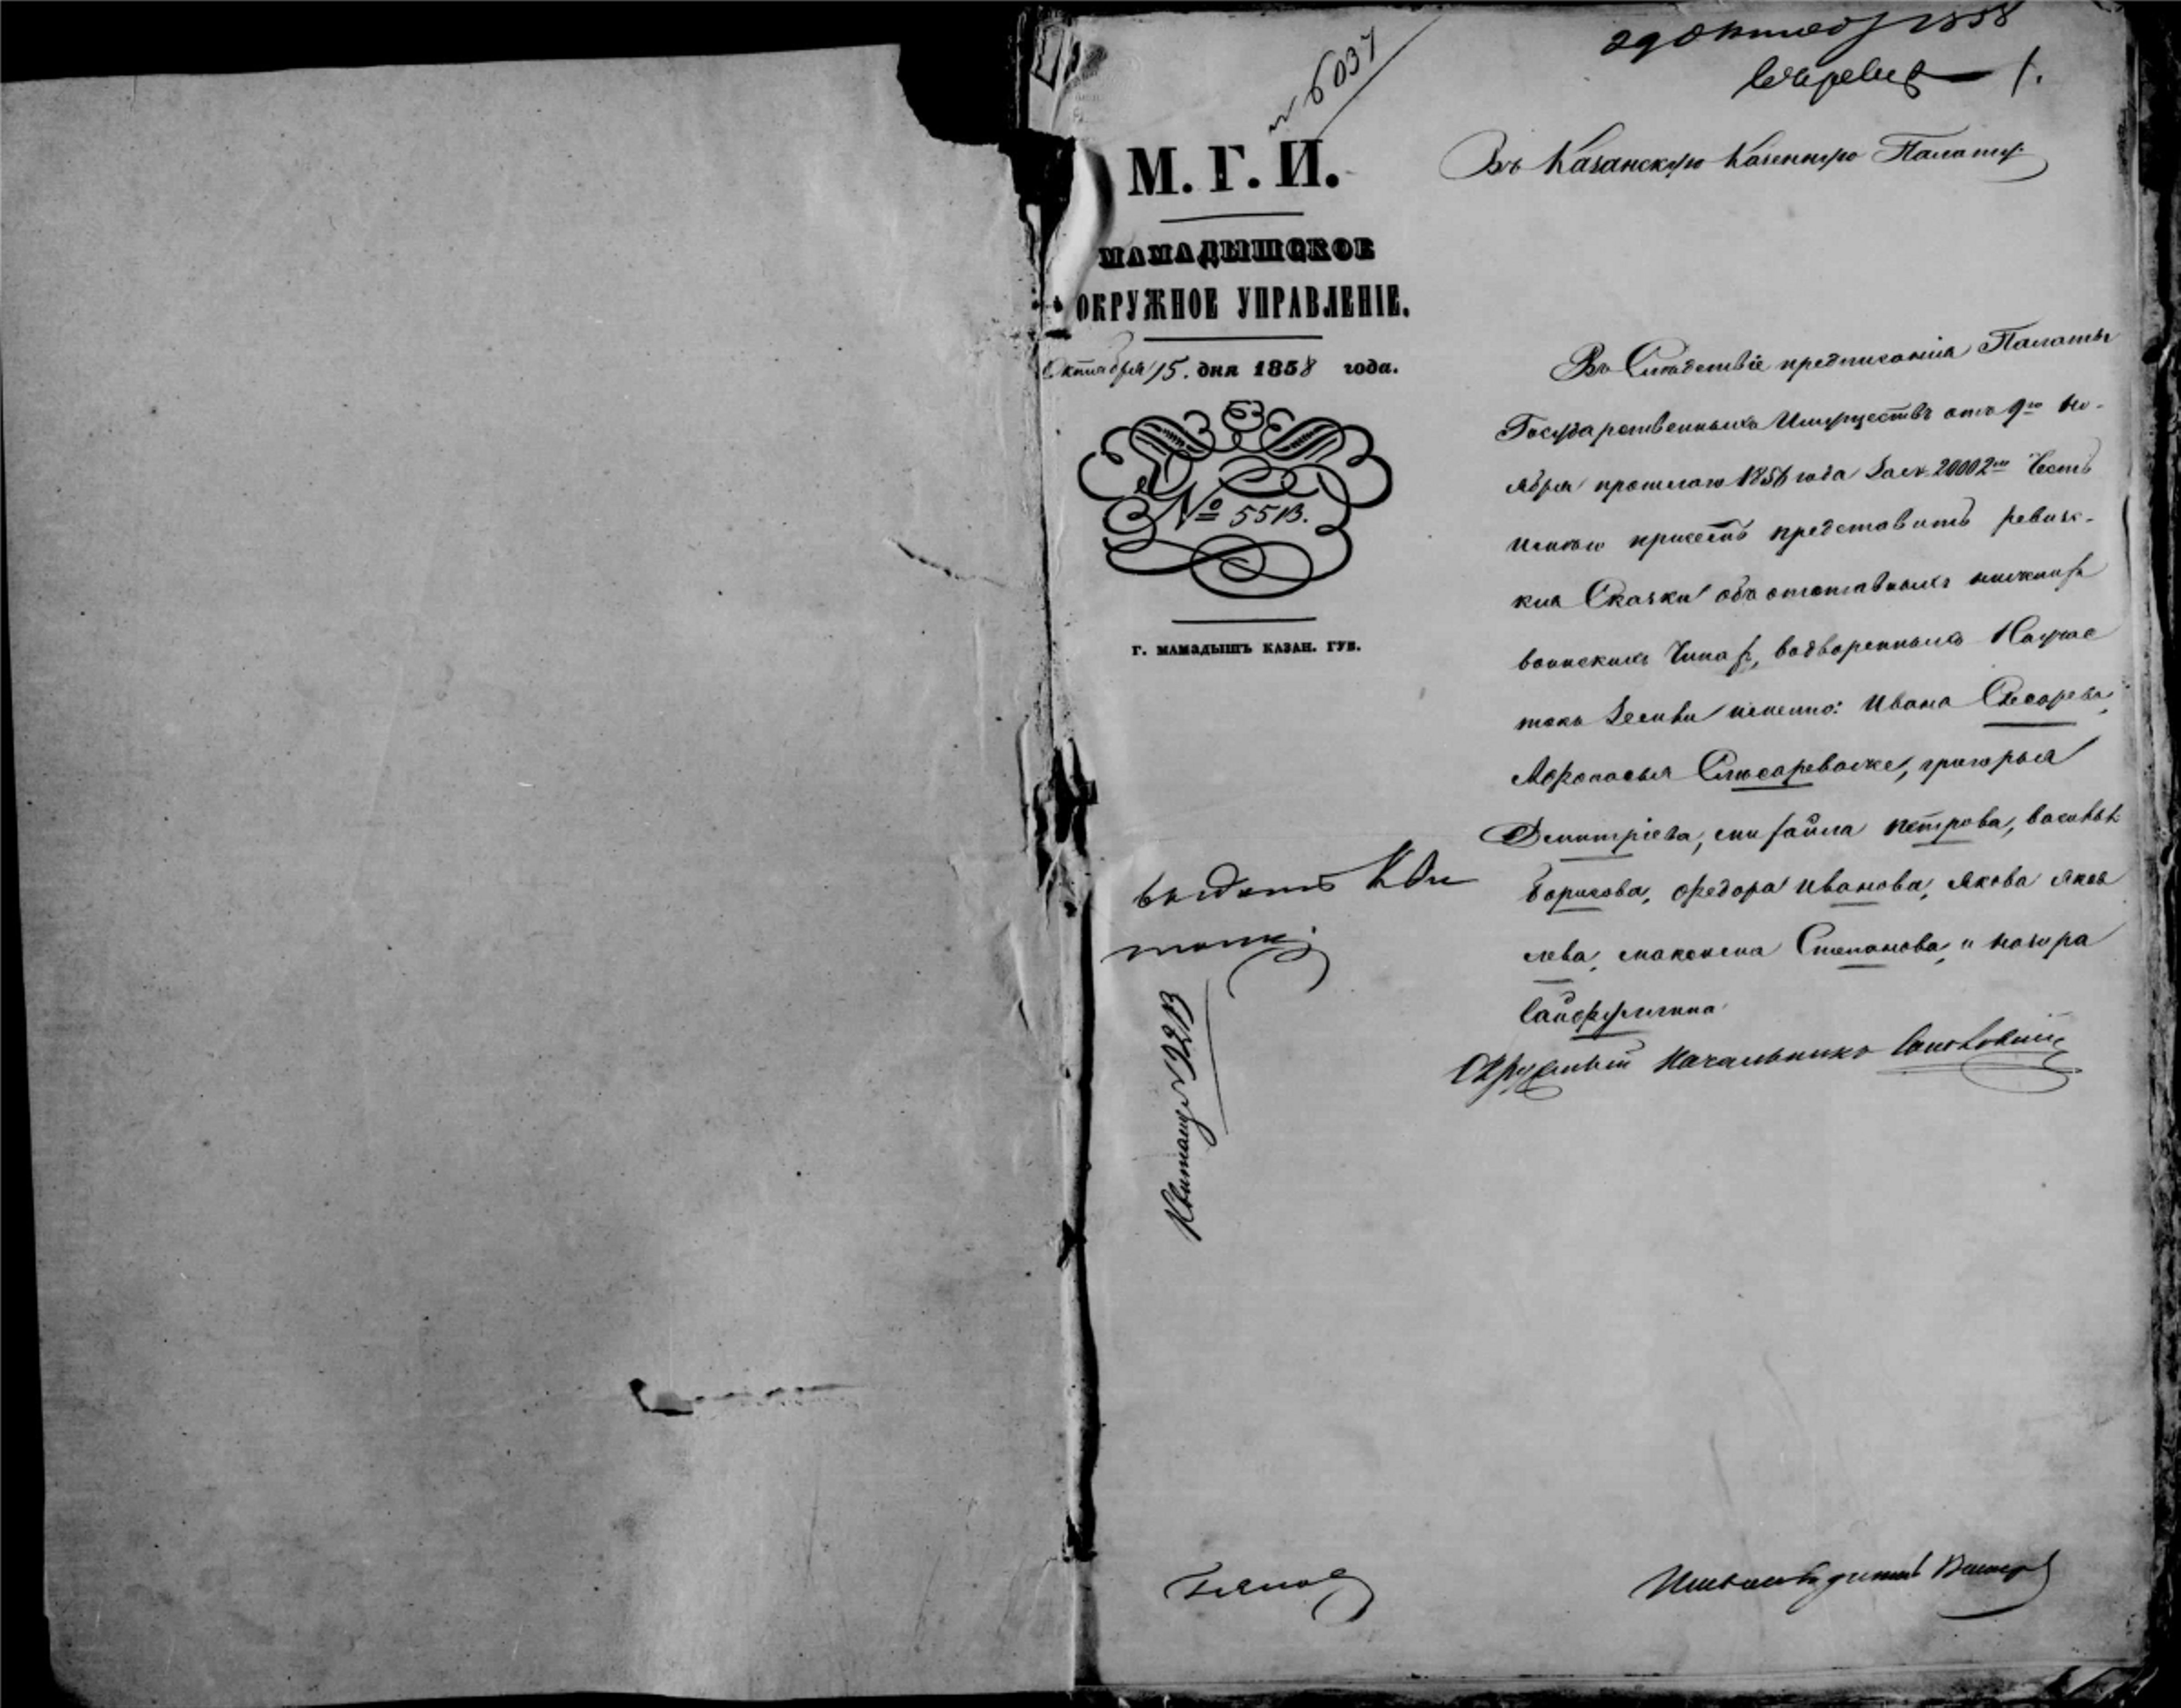 № 6037
29 октябр 1858
1.
М. Г. И.
МАМАДЫШСКОЕ
ОКРУЖНОЕ УПРАВЛЕНІЕ.
Октября 15. дня 1858 года.
№ 5513.
Г. МАМАДЫШЪ КАЗАН. ГУБ.
Въ Казанскую Казенную Палату
Въ Слѣдствіе предписанія Палаты
Государственныхъ Имуществъ отъ 9го Но-
ября прошлаго 1856 года за № 20002м Честь
имѣю присемъ представить ревиж-
кия Сказки объ отставныхъ нижнихъ
воинскихъ Чинахъ, водворенныхъ
земли именно: Ивана Слесарева,
Афонасья Слюсарева же, григорья
Дмитріева, михайла петрова, василья
Борисова, федора иванова, якова яков
лева, максима Степанова, и назира
Сайфуллина
Окружный Начальникъ
выдать Кви
танц.
Квитанц № 9213